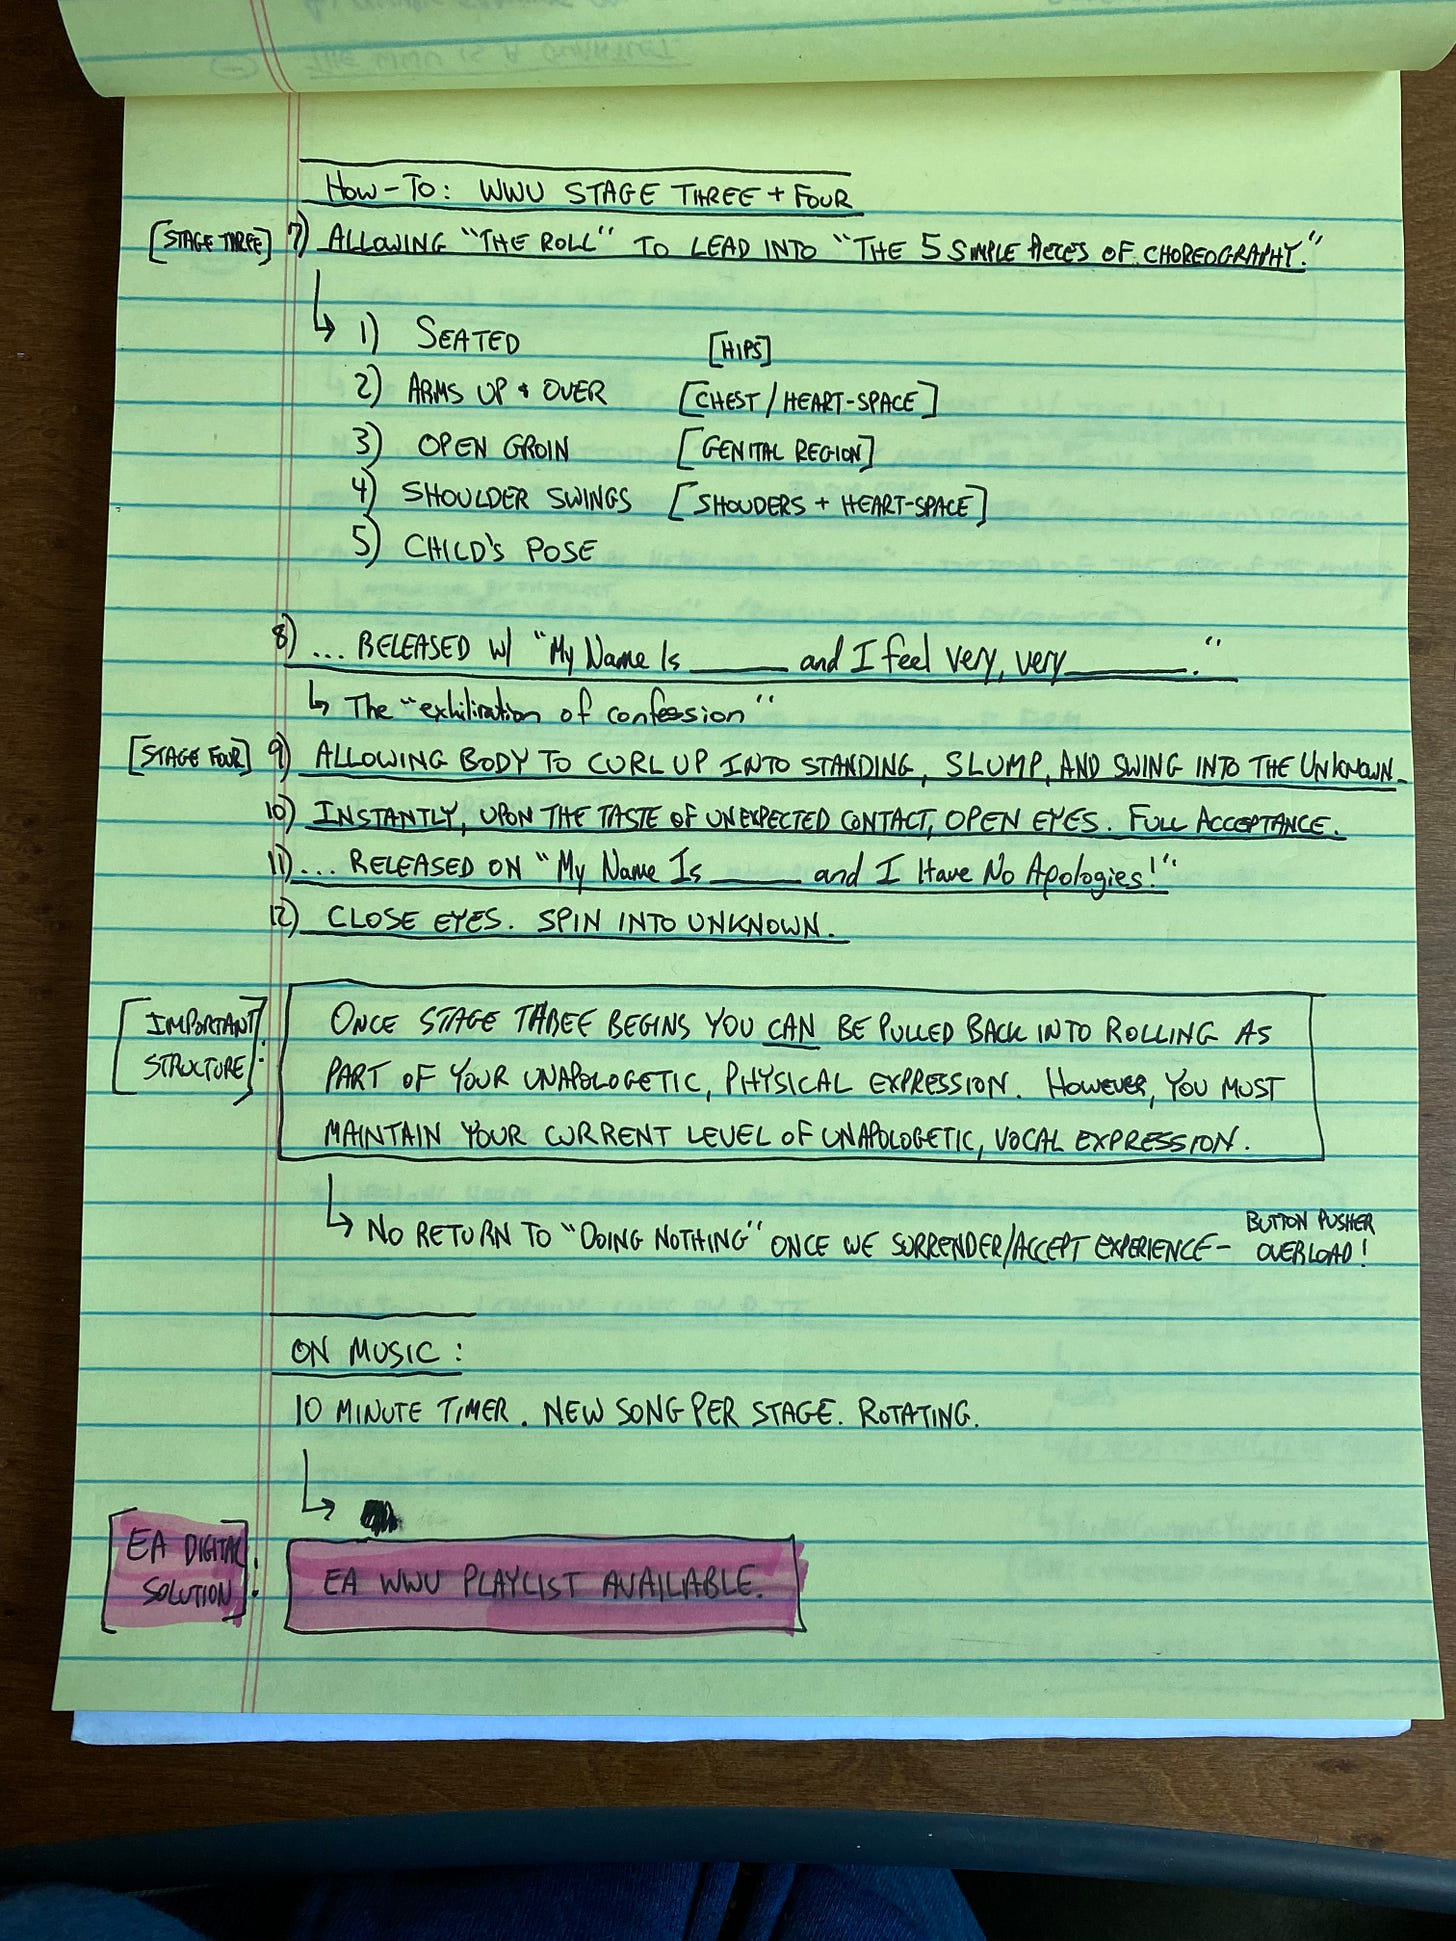 How-To: WWU STAGE THREE + FOUR
[STAGE THREE] 7) ALLOWING "THE ROLL" TO LEAD INTO "THE 5 SIMPLE PIECES OF CHOREOGRAPHY."
↳ 1) SEATED [HIPS]
2) ARMS UP + OVER [CHEST/HEART-SPACE]
3) OPEN GROIN [GENITAL REGION]
4) SHOULDER SWINGS [SHOUDERS + HEART-SPACE]
5) CHILD'S POSE
8) ... RELEASED W/ "My Name Is ______ and I feel very, very ________."
↳ The "exhiliration of confession"
[STAGE FOUR] 9) ALLOWING BODY TO CURL UP INTO STANDING, SLUMP, AND SWING INTO THE UNKNOWN.
10) INSTANTLY, UPON THE TASTE OF UNEXPECTED CONTACT, OPEN EYES. FULL ACCEPTANCE.
11) ... RELEASED ON "My Name Is ______ and I Have No Apologies!"
12) CLOSE EYES. SPIN INTO UNKNOWN.
[IMPORTANT STRUCTURE]: ONCE STAGE THREE BEGINS YOU CAN BE PULLED BACK INTO ROLLING AS
PART OF YOUR UNAPOLOGETIC, PHYSICAL EXPRESSION. HOWEVER, YOU MUST
MAINTAIN YOUR CURRENT LEVEL OF UNAPOLOGETIC, VOCAL EXPRESSION.
↳ NO RETURN TO "DOING NOTHING" ONCE WE SURRENDER/ACCEPT EXPERIENCE - BUTTON PUSHER OVERLOAD!
ON MUSIC:
10 MINUTE TIMER. NEW SONG PER STAGE. ROTATING.
[EA DIGITAL SOLUTION]: EA WWU PLAYLIST AVAILABLE.